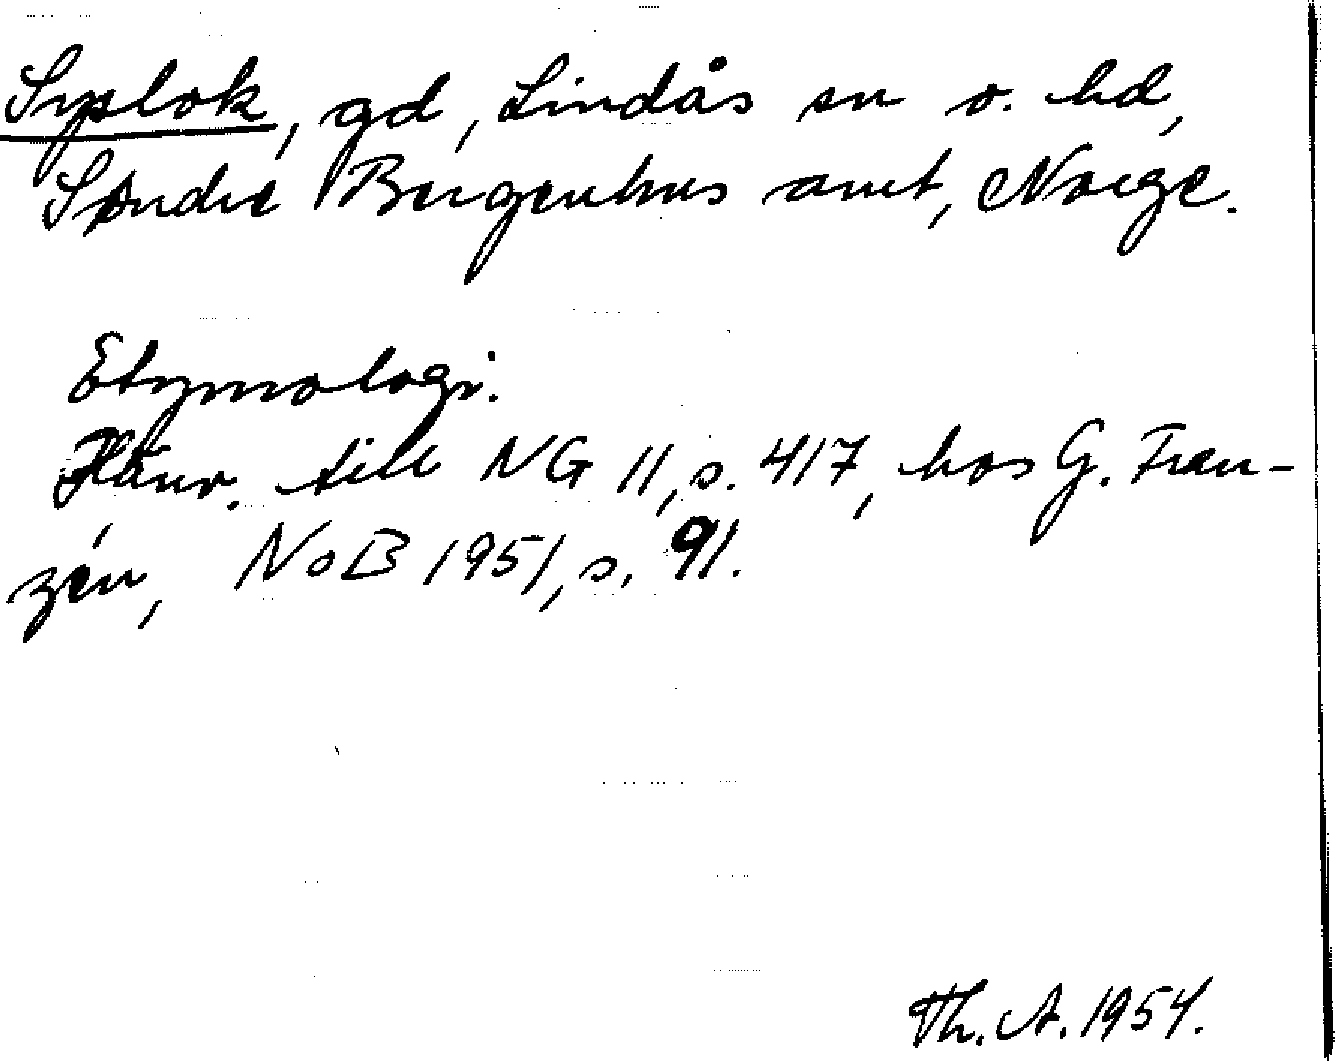 Syslok, gd, Lindås sn o. hd,
Søndre Bergenhus amt, Norge.
Etymologi.
Hänv. till NG 11, s. 417, hos G. Fran-
zén, NoB 1951, s. 91.
Th. A. 1954.